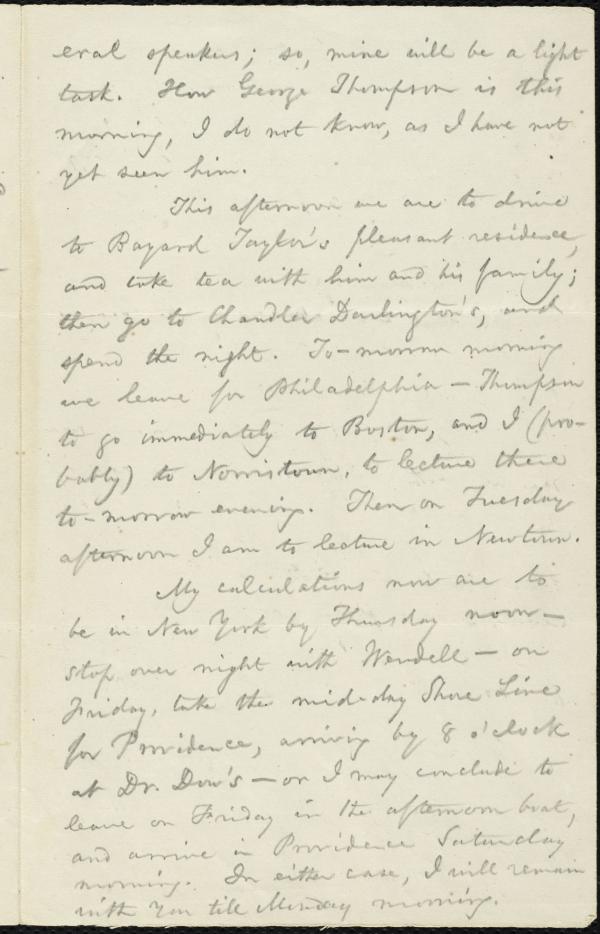 eral speakers; so, mine will be a light
task. How George Thompson is this
morning, I do not know, as I have not
yet seen him.
This afternoon we are to drive
to Bayard Taylor's pleasant residence,
and take tea with him and his family;
then go to Chandler Darlington's, and
spend the night. To-morrow morning
we leave for Philadelphia — Thompson
to go immediately to Boston, and I (pro-
bably) to Norristown, to lecture there
to-morrow evening. Then on Tuesday
afternoon I am to lecture in Newtown.
My calculations now are to
be in New York by Thursday noon —
stop over night with Wendell — on
Friday, take the mid-day Shore Line
for Providence, arriving by 8 o'clock
at Dr. Dow's — or I may conclude to
leave on Friday in the afternoon boat,
and arrive in Providence Saturday
morning. In either case, I will remain
with you till Monday morning.